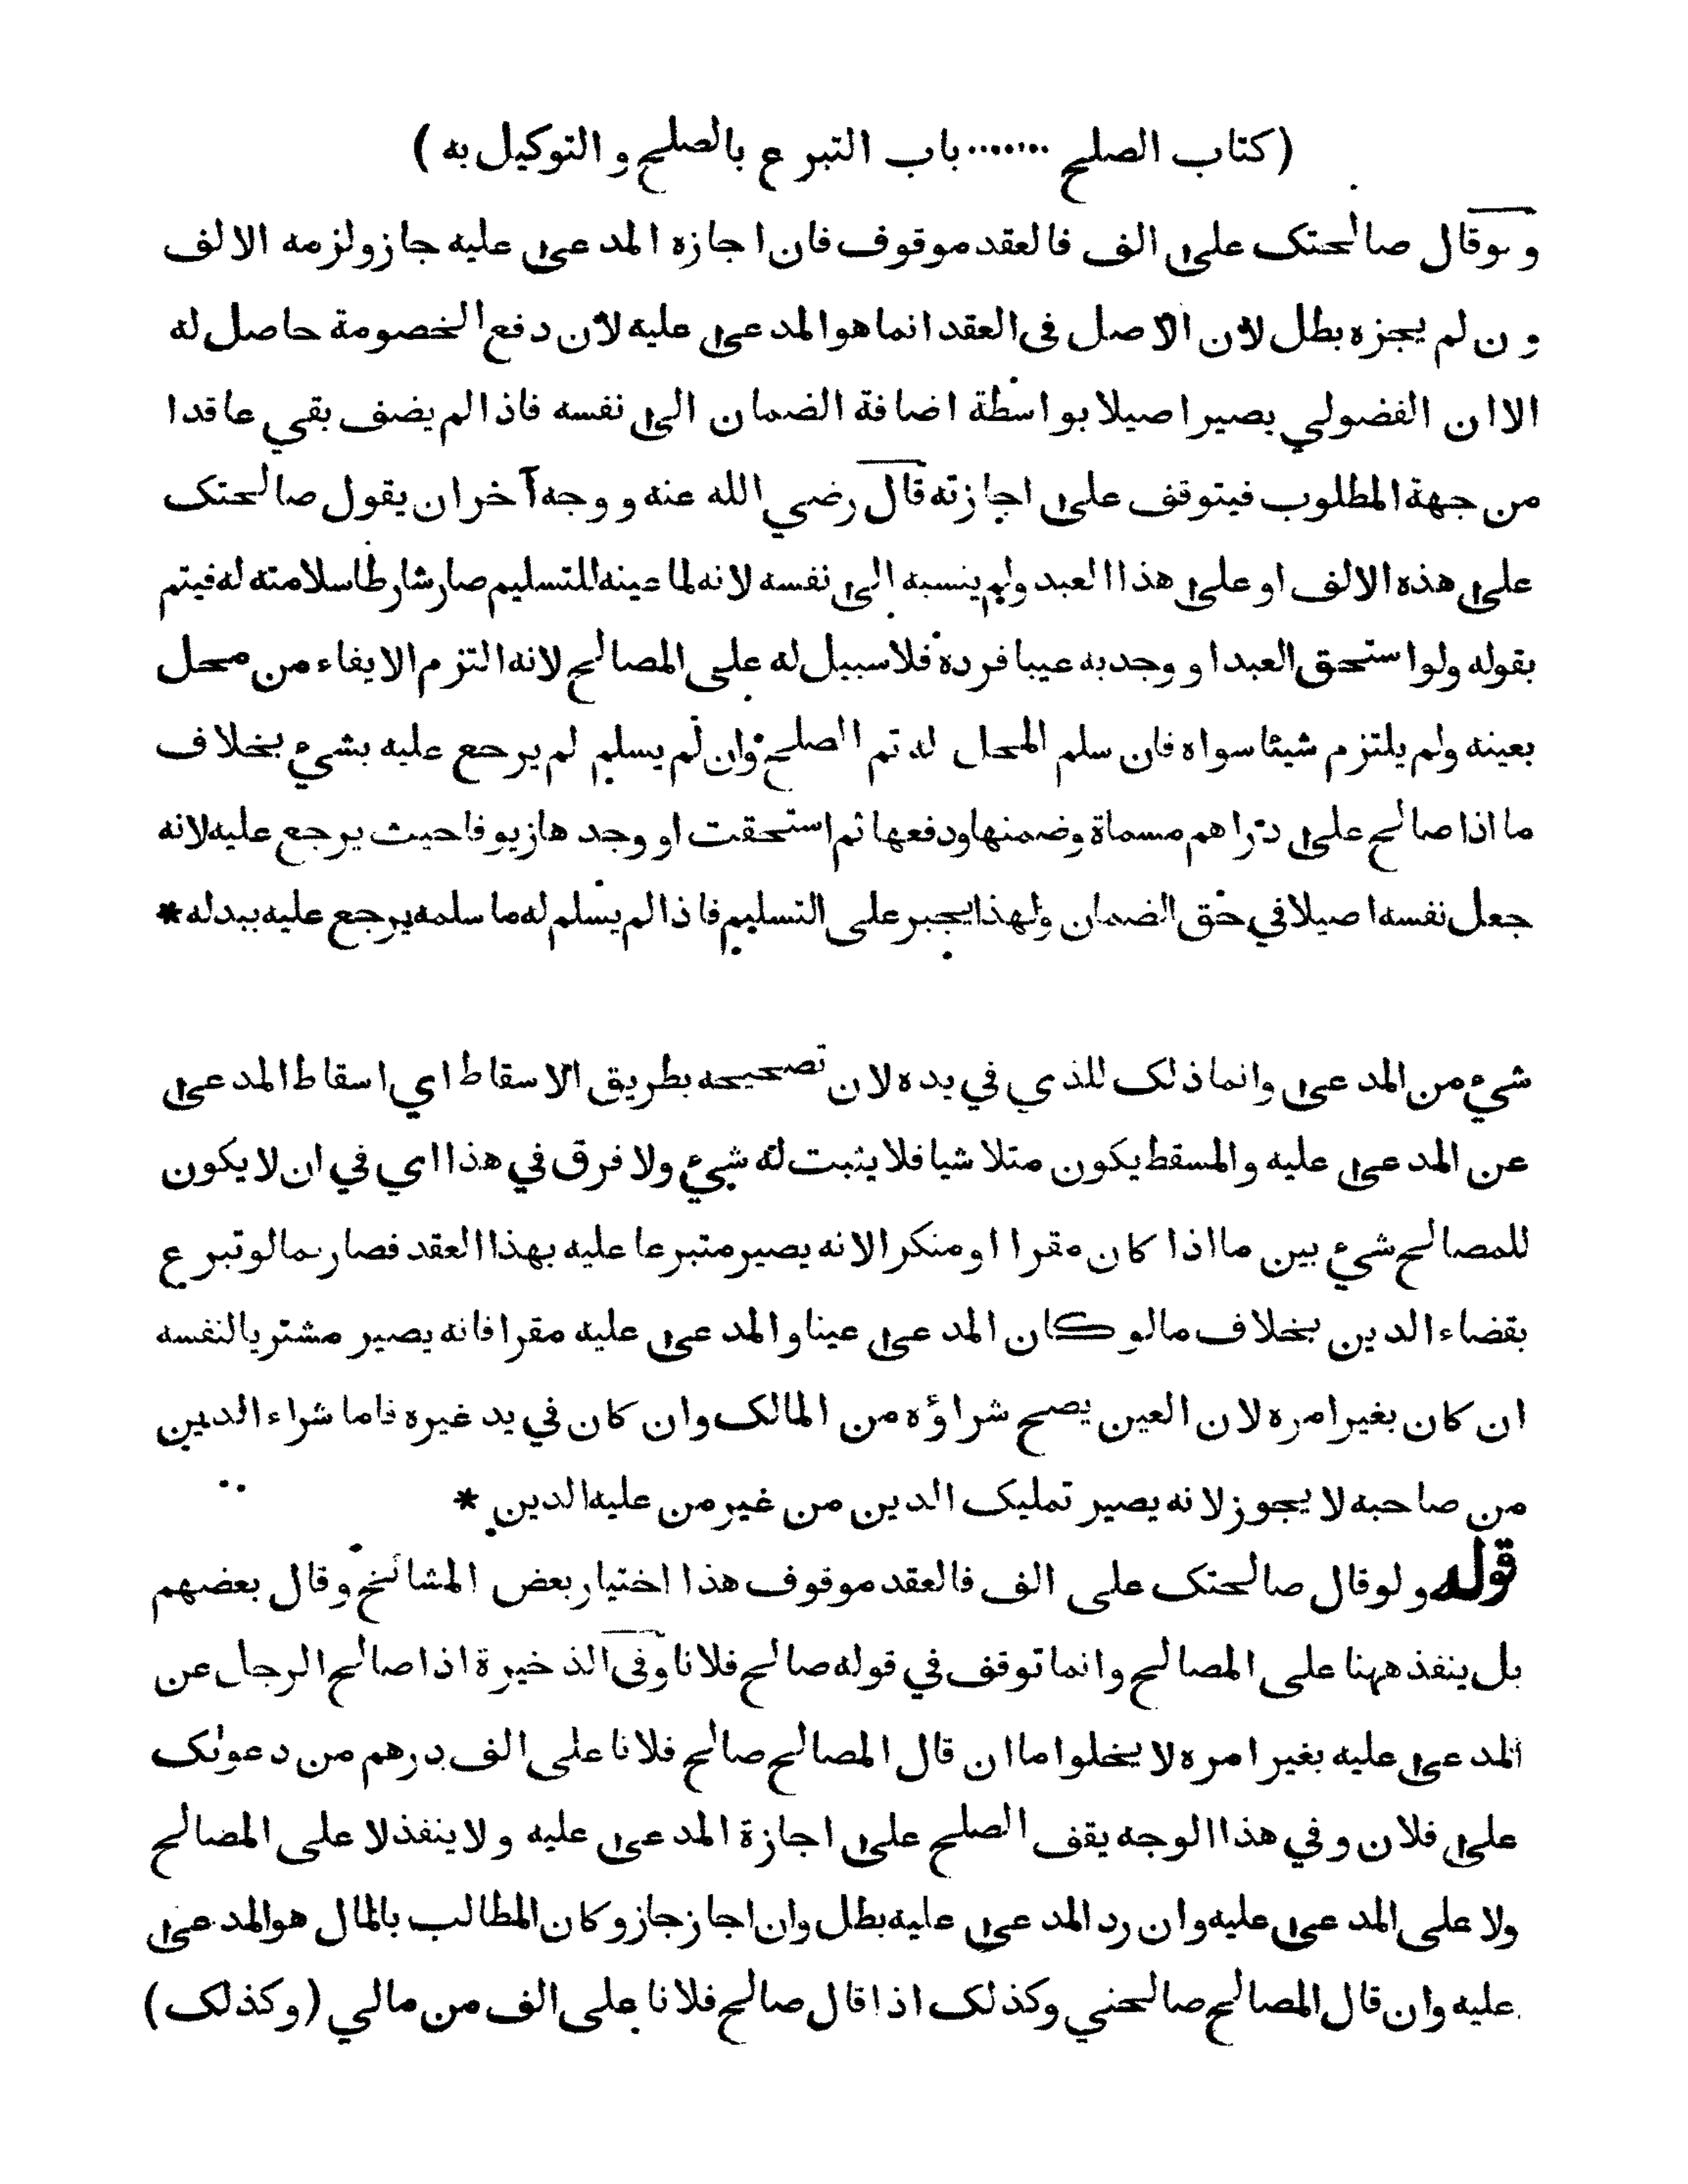 (كتاب الصلح ....... باب التبرع بالصلح و التوكيل به)
ولوقال صالحتك على الف فالعقد موقوف فان اجازه المدعى عليه جاز ولزمه الالف
وان لم يجزه بطل لان الاصل فى العقد انما هو المدعى عليه لان دفع الخصومة حاصل له
الا ان الفضولي يصير اصيلا بواسطة اضافة الضمان الى نفسه فاذا لم يضف بقي عاقدا
من جهة المطلوب فيتوقف على اجازته قال رضي الله عنه و وجه آخر ان يقول صالحتك
على هذه الالف او على هذا العبد ولم ينسبه الى نفسه لانه لما عينه للتسليم صار شارطا سلامته له فيتم
بقوله ولو استحق العبد او وجد به عيبا فرده فلا سبيل له على المصالح لانه التزم الايفاء من محل
بعينه ولم يلتزم شيئا سواه فان سلم المحل له تم الصلح وان لم يسلم لم يرجع عليه بشيء بخلاف
ما اذا صالح على دراهم مسماة وضمنها ودفعها ثم استحقت او وجدها زيوفا حيث يرجع عليه لانه
جعل نفسه اصيلا في حق الضمان ولهذا يجبر على التسليم فاذا لم يسلم له ما سلمه يرجع عليه ببدله *
شيء من المدعى وانما ذلك للذي في يده لان تصحيحه بطريق الاسقاط اي اسقاط المدعى
عن المدعى عليه والمسقط يكون متلاشيا فلا يثبت له شيء ولا فرق في هذا اي في ان لا يكون
للمصالح شيء بين ما اذا كان مقرا او منكرا لانه يصير متبرعا عليه بهذا العقد فصار كما لو تبرع
بقضاء الدين بخلاف ما لو كان المدعى عينا و المدعى عليه مقرا فانه يصير مشتريا لنفسه
ان كان بغير امره لان العين يصح شراؤه من المالك وان كان في يد غيره فاما شراء الدين
من صاحبه لا يجوز لانه يصير تمليك الدين من غير من عليه الدين *
قوله ولو قال صالحتك على الف فالعقد موقوف هذا اختيار بعض المشائخ وقال بعضهم
بل ينفذ ههنا على المصالح وانما توقف في قوله صالح فلانا وفى الذخيرة اذا صالح الرجل عن
المدعى عليه بغير امره لا يخلوا ما ان قال المصالح صالح فلانا على الف درهم من دعوىك
على فلان و في هذا الوجه يقف الصلح على اجازة المدعى عليه و لا ينفذ لا على المصالح
ولا على المدعى عليه وان رد المدعى عليه بطل وان اجاز جاز و كان المطالب بالمال هو المدعى
عليه وان قال المصالح صالحني وكذلك اذا قال صالح فلانا على الف من مالي (وكذلك)